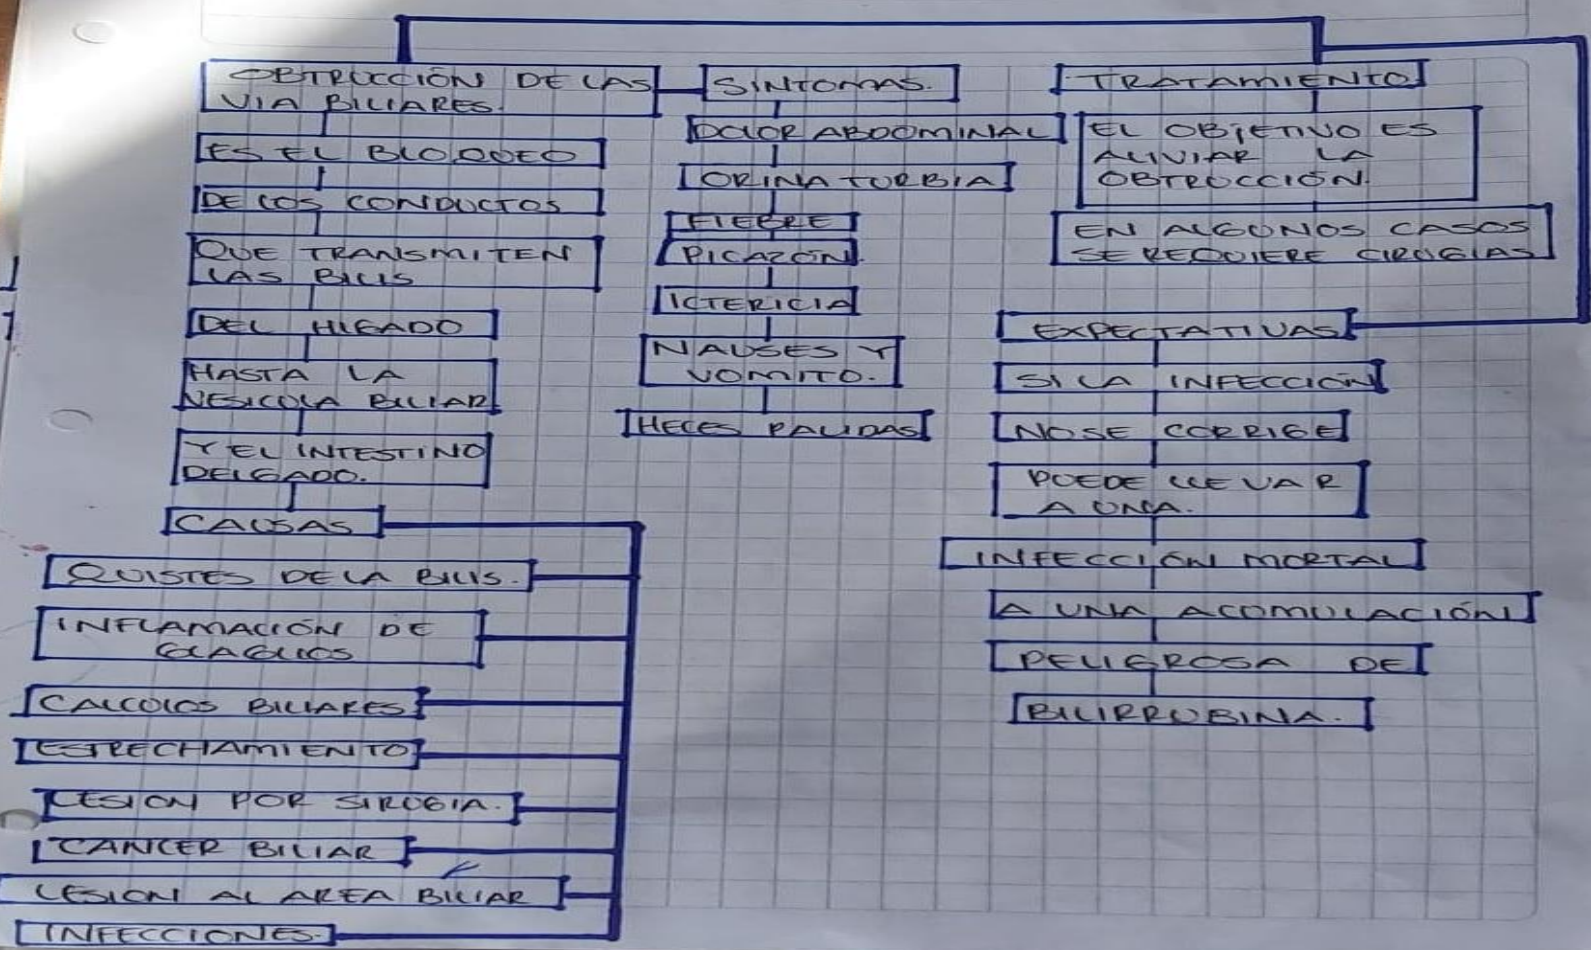 OBTRUCCIÓN DE LAS
VIA BILIARES.
ES EL BLOQUEO
DE LOS CONDUCTOS
QUE TRANSMITEN
LAS BILIS
DEL HIGADO
HASTA LA
VESICULA BILIAR
Y EL INTESTINO
DELGADO.
CAUSAS
QUISTES DE LA BILIS.
INFLAMACIÓN DE
CALCULOS BILIARES
ESTRECHAMIENTO
LESION POR SIRUGIA.
CANCER BILIAR
LESION AL AREA BILIAR
INFECCIONES.
SINTOMAS.
DOLOR ABDOMINAL
ORINA TURBIA
FIEBRE
PICAZÓN
ICTERICIA
NAUSES Y
VOMITO.
HECES PALIDAS
TRATAMIENTO
EL OBJETIVO ES
ALIVIAR LA
OBTRUCCIÓN.
EN ALGUNOS CASOS
SE REQUIERE CIRUGIAS
EXPECTATIVAS
SI LA INFECCIÓN
NO SE CORRIGE
PUEDE LLEVAR
A UNA.
INFECCIÓN MORTAL
A UNA ACOMULACIÓN
PELIGROSA DE
BILIRRUBINA.